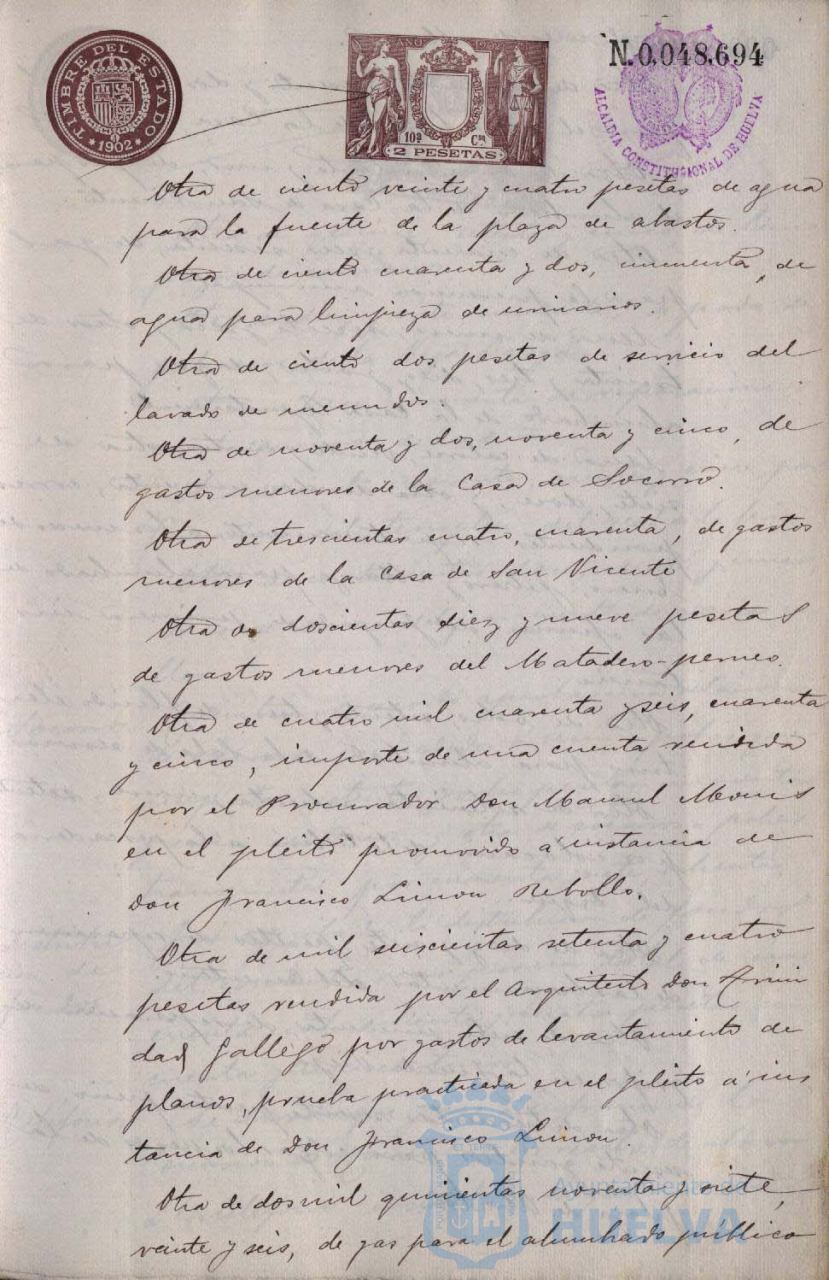 TIMBRE DEL ESTADO
* 1902 *
AÑO 1902
10ª Cª
2 PESETAS
N.0.048.694
ALCALDIA CONSTITUCIONAL DE HUELVA
Otra de ciento veinte y cuatro pesetas de agua
para la fuente de la plaza de abastos.
Otra de ciento cuarenta y dos, cincuenta, de
agua para limpieza de urinarios.
Otra de ciento dos pesetas de servicio del
lavado de menudos.
Otra de noventa y dos, noventa y cinco, de
gastos menores de la Casa de Socorro.
Otra de trescientas cuatro, cuarenta, de gastos
menores de la Casa de San Vicente
Otra de doscientas diez y nueve pesetas
de gastos menores del Matadero-perneo.
Otra de cuatro mil cuarenta y seis, cuarenta
y cinco, importe de una cuenta rendida
por el Procurador Don Manuel Monis
en el pleito promovido á instancia de
Don Francisco Limon Rebollo.
Otra de mil seiscientas setenta y cuatro
pesetas rendida por el Arquitecto Don Trini
dad Gallego por gastos de levantamiento de
planos, prueba practicada en el pleito á ins
tancia de Don Francisco Limon.
Otra de dos mil quinientas noventa y siete,
veinte y seis, de gas para el alumbrado público
Ayuntamiento de
HUELVA